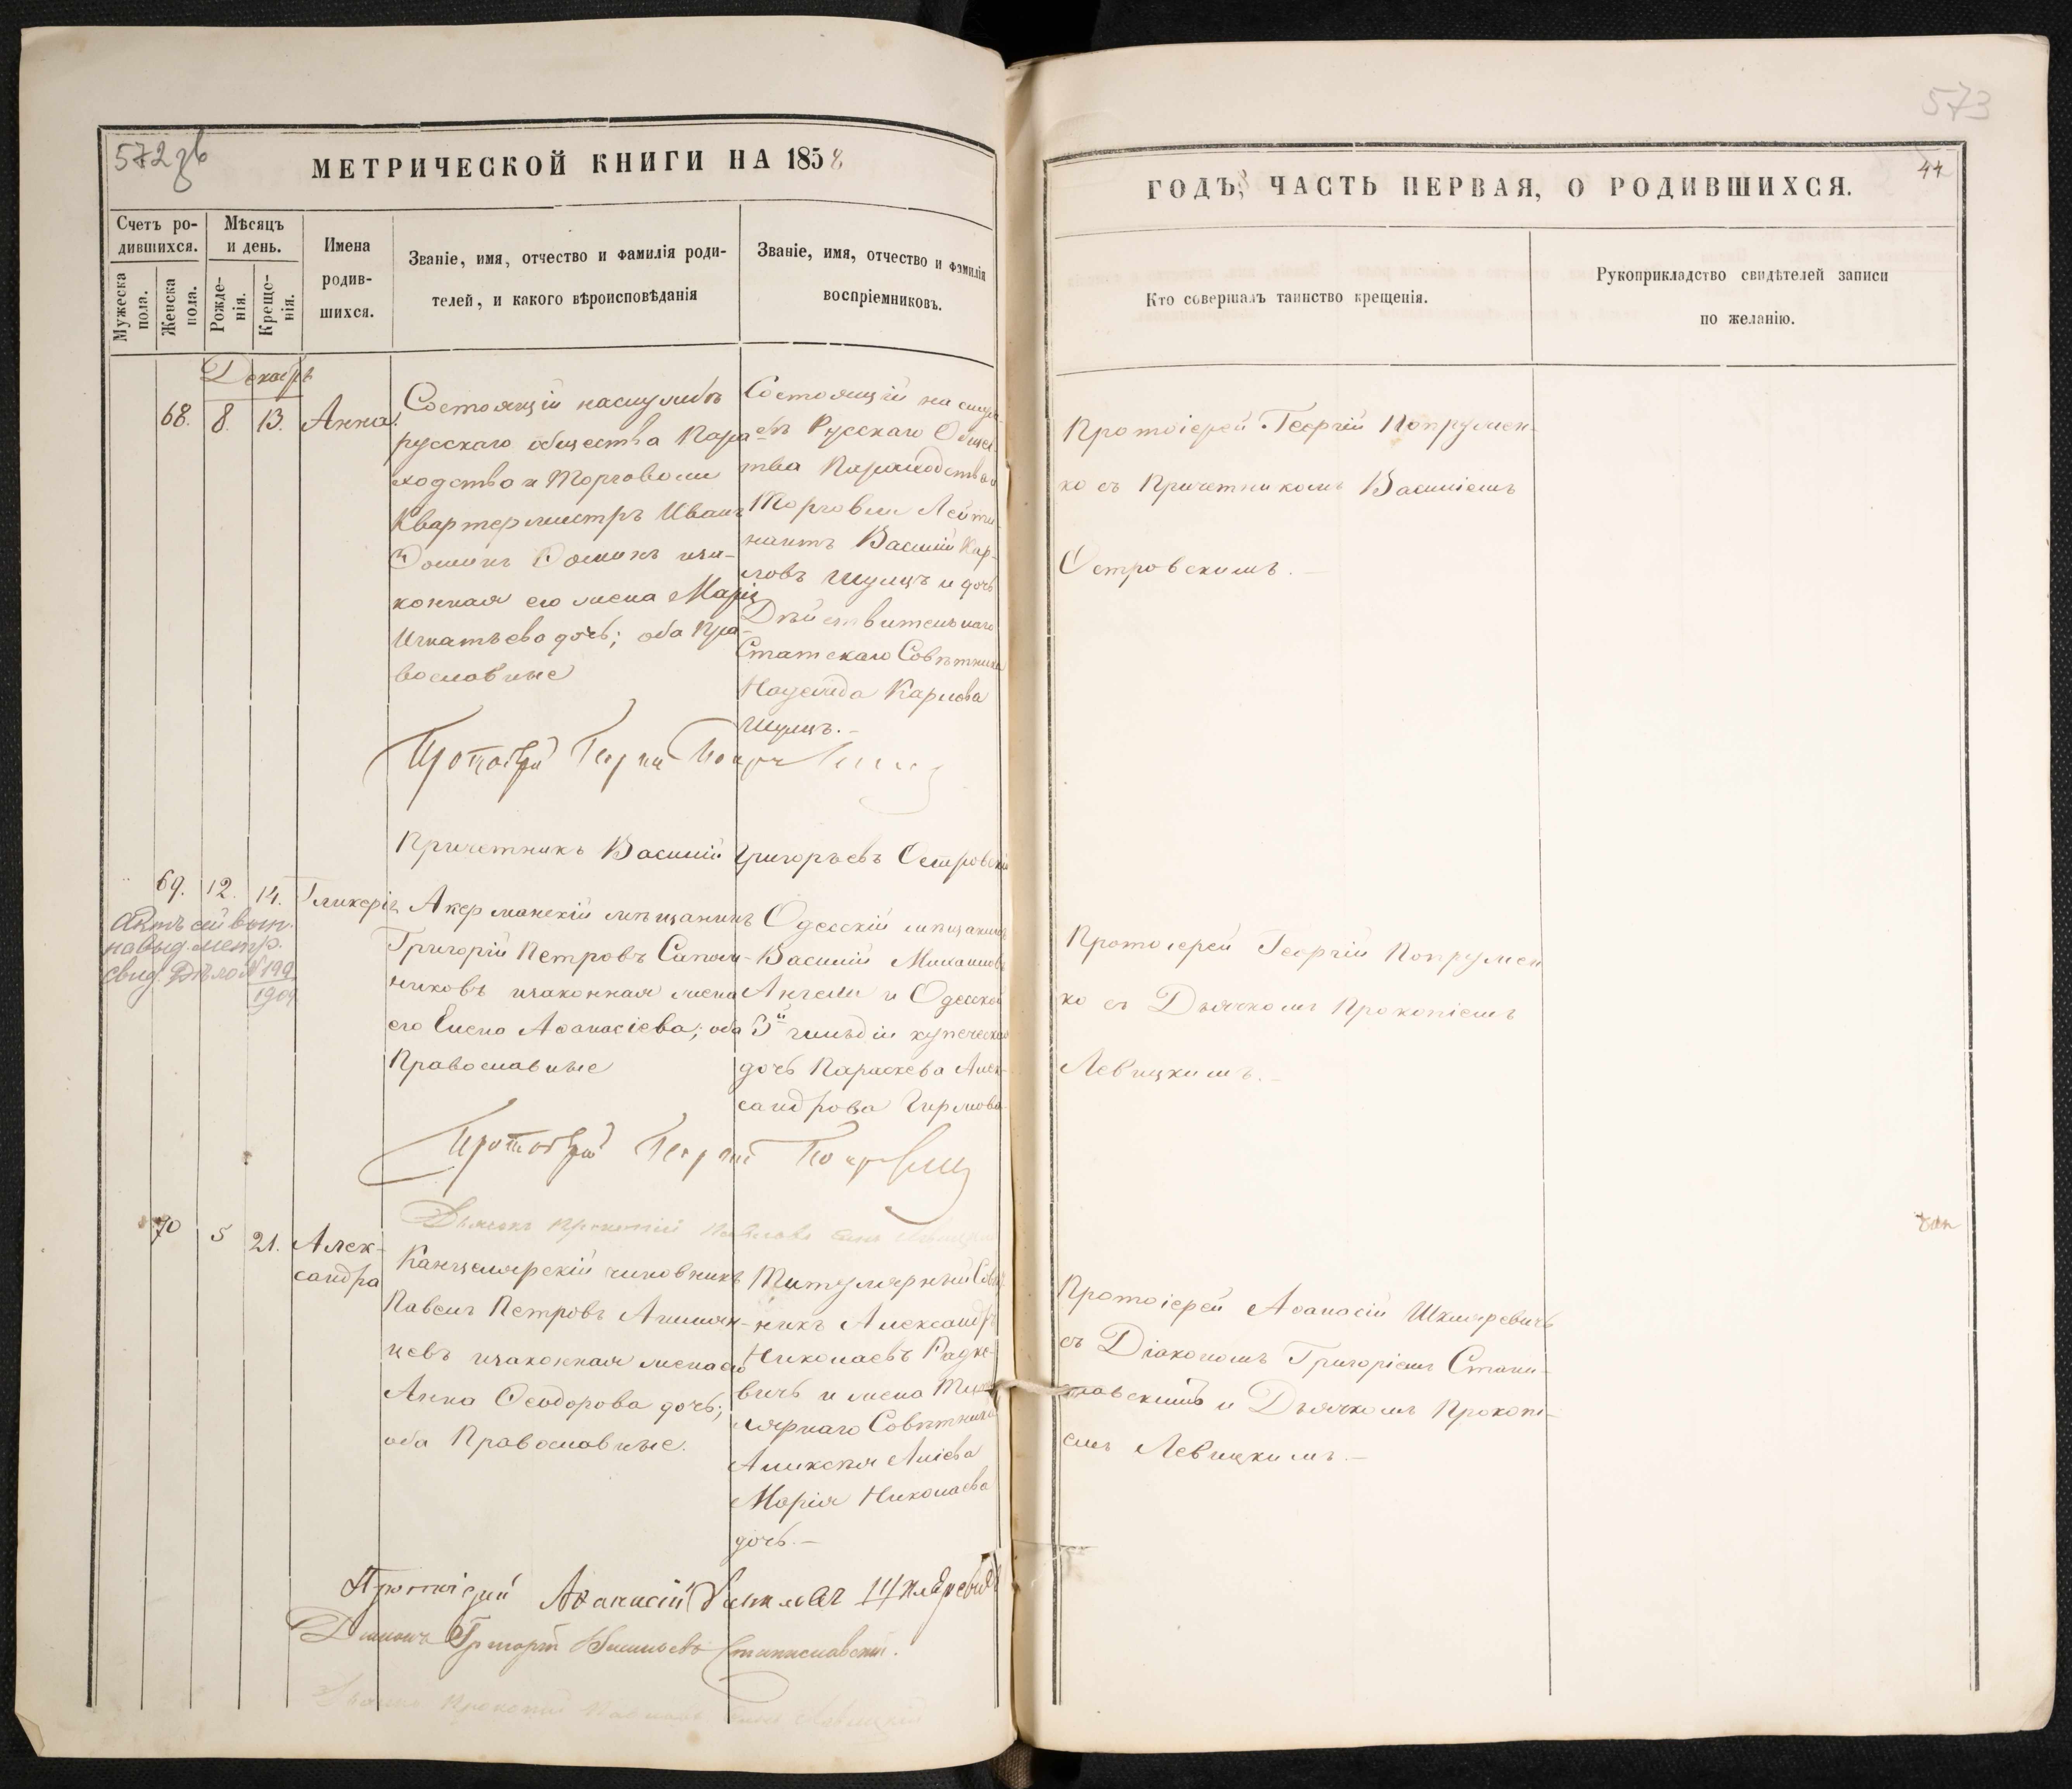 572 зв
МЕТРИЧЕСКОЙ КНИГИ НА 1858
Счетъ ро-
дившихся.
Мужеска
пола.
Женска
пола.
Мѣсяцъ
и день.
Рожде-
нія.
Креще-
нія.
Имена
родив-
шихся.
Званіе, имя, отчество и фамилія роди-
телей, и какого вѣроисповѣданія
Званіе, имя, отчество и фамилія
воспріемниковъ.
Декабрь
68. 8. 13. Анна.
Состоящій наслужбѣ
русскаго общества Паро
ходства и Торговли
Квартермистръ Иванъ
иза-
конная его жена Марія
Игнатьева дочь; оба Пра-
вославные
Состоящій на служ
бѣ Русскаго Общес
тва Пароходства и
Торговли Лейте-
нантъ Василій Кар-
ловъ Шульцъ и дочь
Дѣйствительнаго
Статскаго Совѣтника
Надежда Карлова
Шульцъ.-
Протоіерей Георгій Попруженко
Причетникъ Василій Григорьевъ Островскій
69. 12. 14. Гликерія
Актъ сей вып.
на выд. метр.
свид. Дѣло № 199
1909
Акерманскій мѣщанинъ
Григорій Петровъ Сапож-
никовъ изаконная жена
его Елена Аѳанасіева; оба
Православные
Одесскій мѣщанинъ
Василій Михаиловъ
Ангели и Одесской
3й гильдіи купеческая
дочь Параскева Алек-
сандрова
Протоіерей Георгій Попруженко
Дьячекъ Прокопій Павловъ сынъ Левицкій
70 5 21. Алек-
сандра
Канцелярскій чиновникъ
Павелъ Петровъ
цевъ изаконная жена его
Анна Ѳеодорова дочь;
оба Православные.
Титулярный Совѣт
никъ Александръ
Николаевъ Радке-
вичъ и жена Титу
лярнаго Совѣтника
Алексѣя
Марія Николаева
дочь.-
Протоіерей Аѳанасій Шкляревичъ
Діаконъ Григорій Станиславскій.
Дьячекъ Прокопій Павловъ сынъ Левицкій
573
44
ГОДЪ, ЧАСТЬ ПЕРВАЯ, О РОДИВШИХСЯ.
Кто совершалъ таинство крещенія.
Рукоприкладство свидѣтелей записи
по желанію.
Протоіерей Георгій Попружен-
ко съ Причетникомъ Василіемъ
Островскимъ.-
Протоіерей Георгій Попружен
ко съ Дьячкомъ Прокопіемъ
Левицкимъ.-
Протоіерей Аѳанасій Шкляревичъ
съ Діакономъ Григоріемъ Стани-
славскимъ и Дьячкомъ Прокопі-
емъ Левицкимъ.-